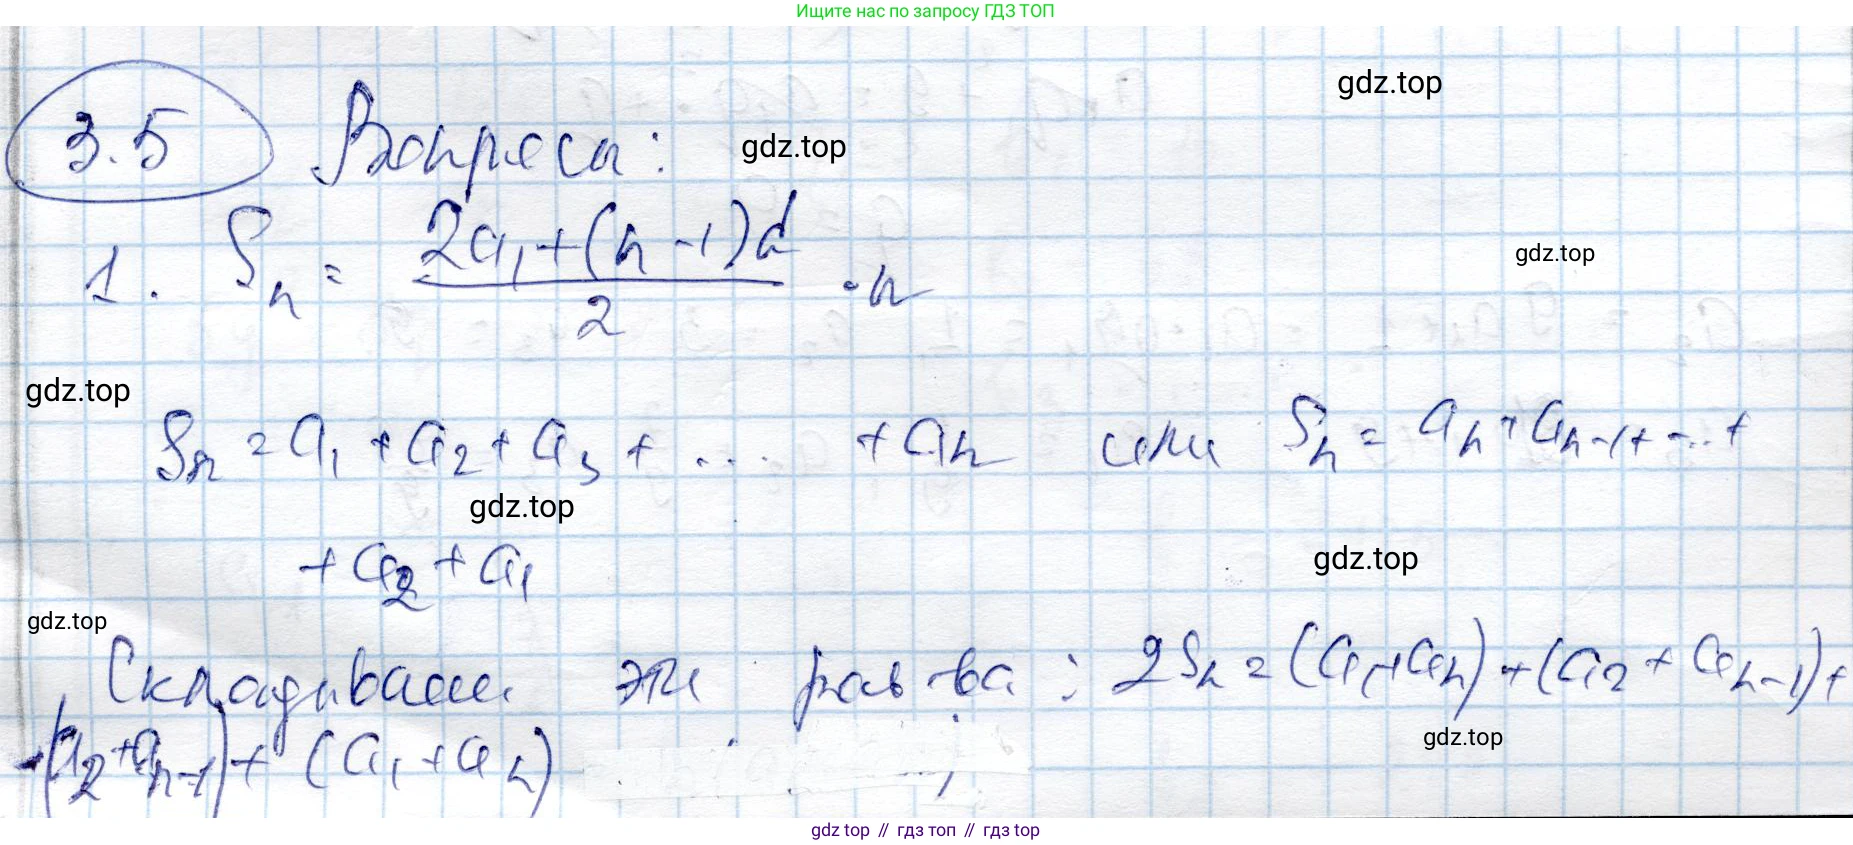 Ищите нас по запросу ГДЗ ТОП
gdz.top
3.5 Вопросы:
gdz.top
1. Sn = (2a₁+(n-1)d)/2 · n
gdz.top
gdz.top
Sn = a₁ + a₂ + a₃ + ... + an или Sn = an + an-1 + ... +
gdz.top
+ a₂ + a₁
gdz.top
gdz.top
Складываем эти рав-ва: 2Sn = (a₁+an) + (a₂ + an-1) +
gdz.top
+(a₂+an-1) + (a₁ + an)
gdz top // гдз топ // гдз top